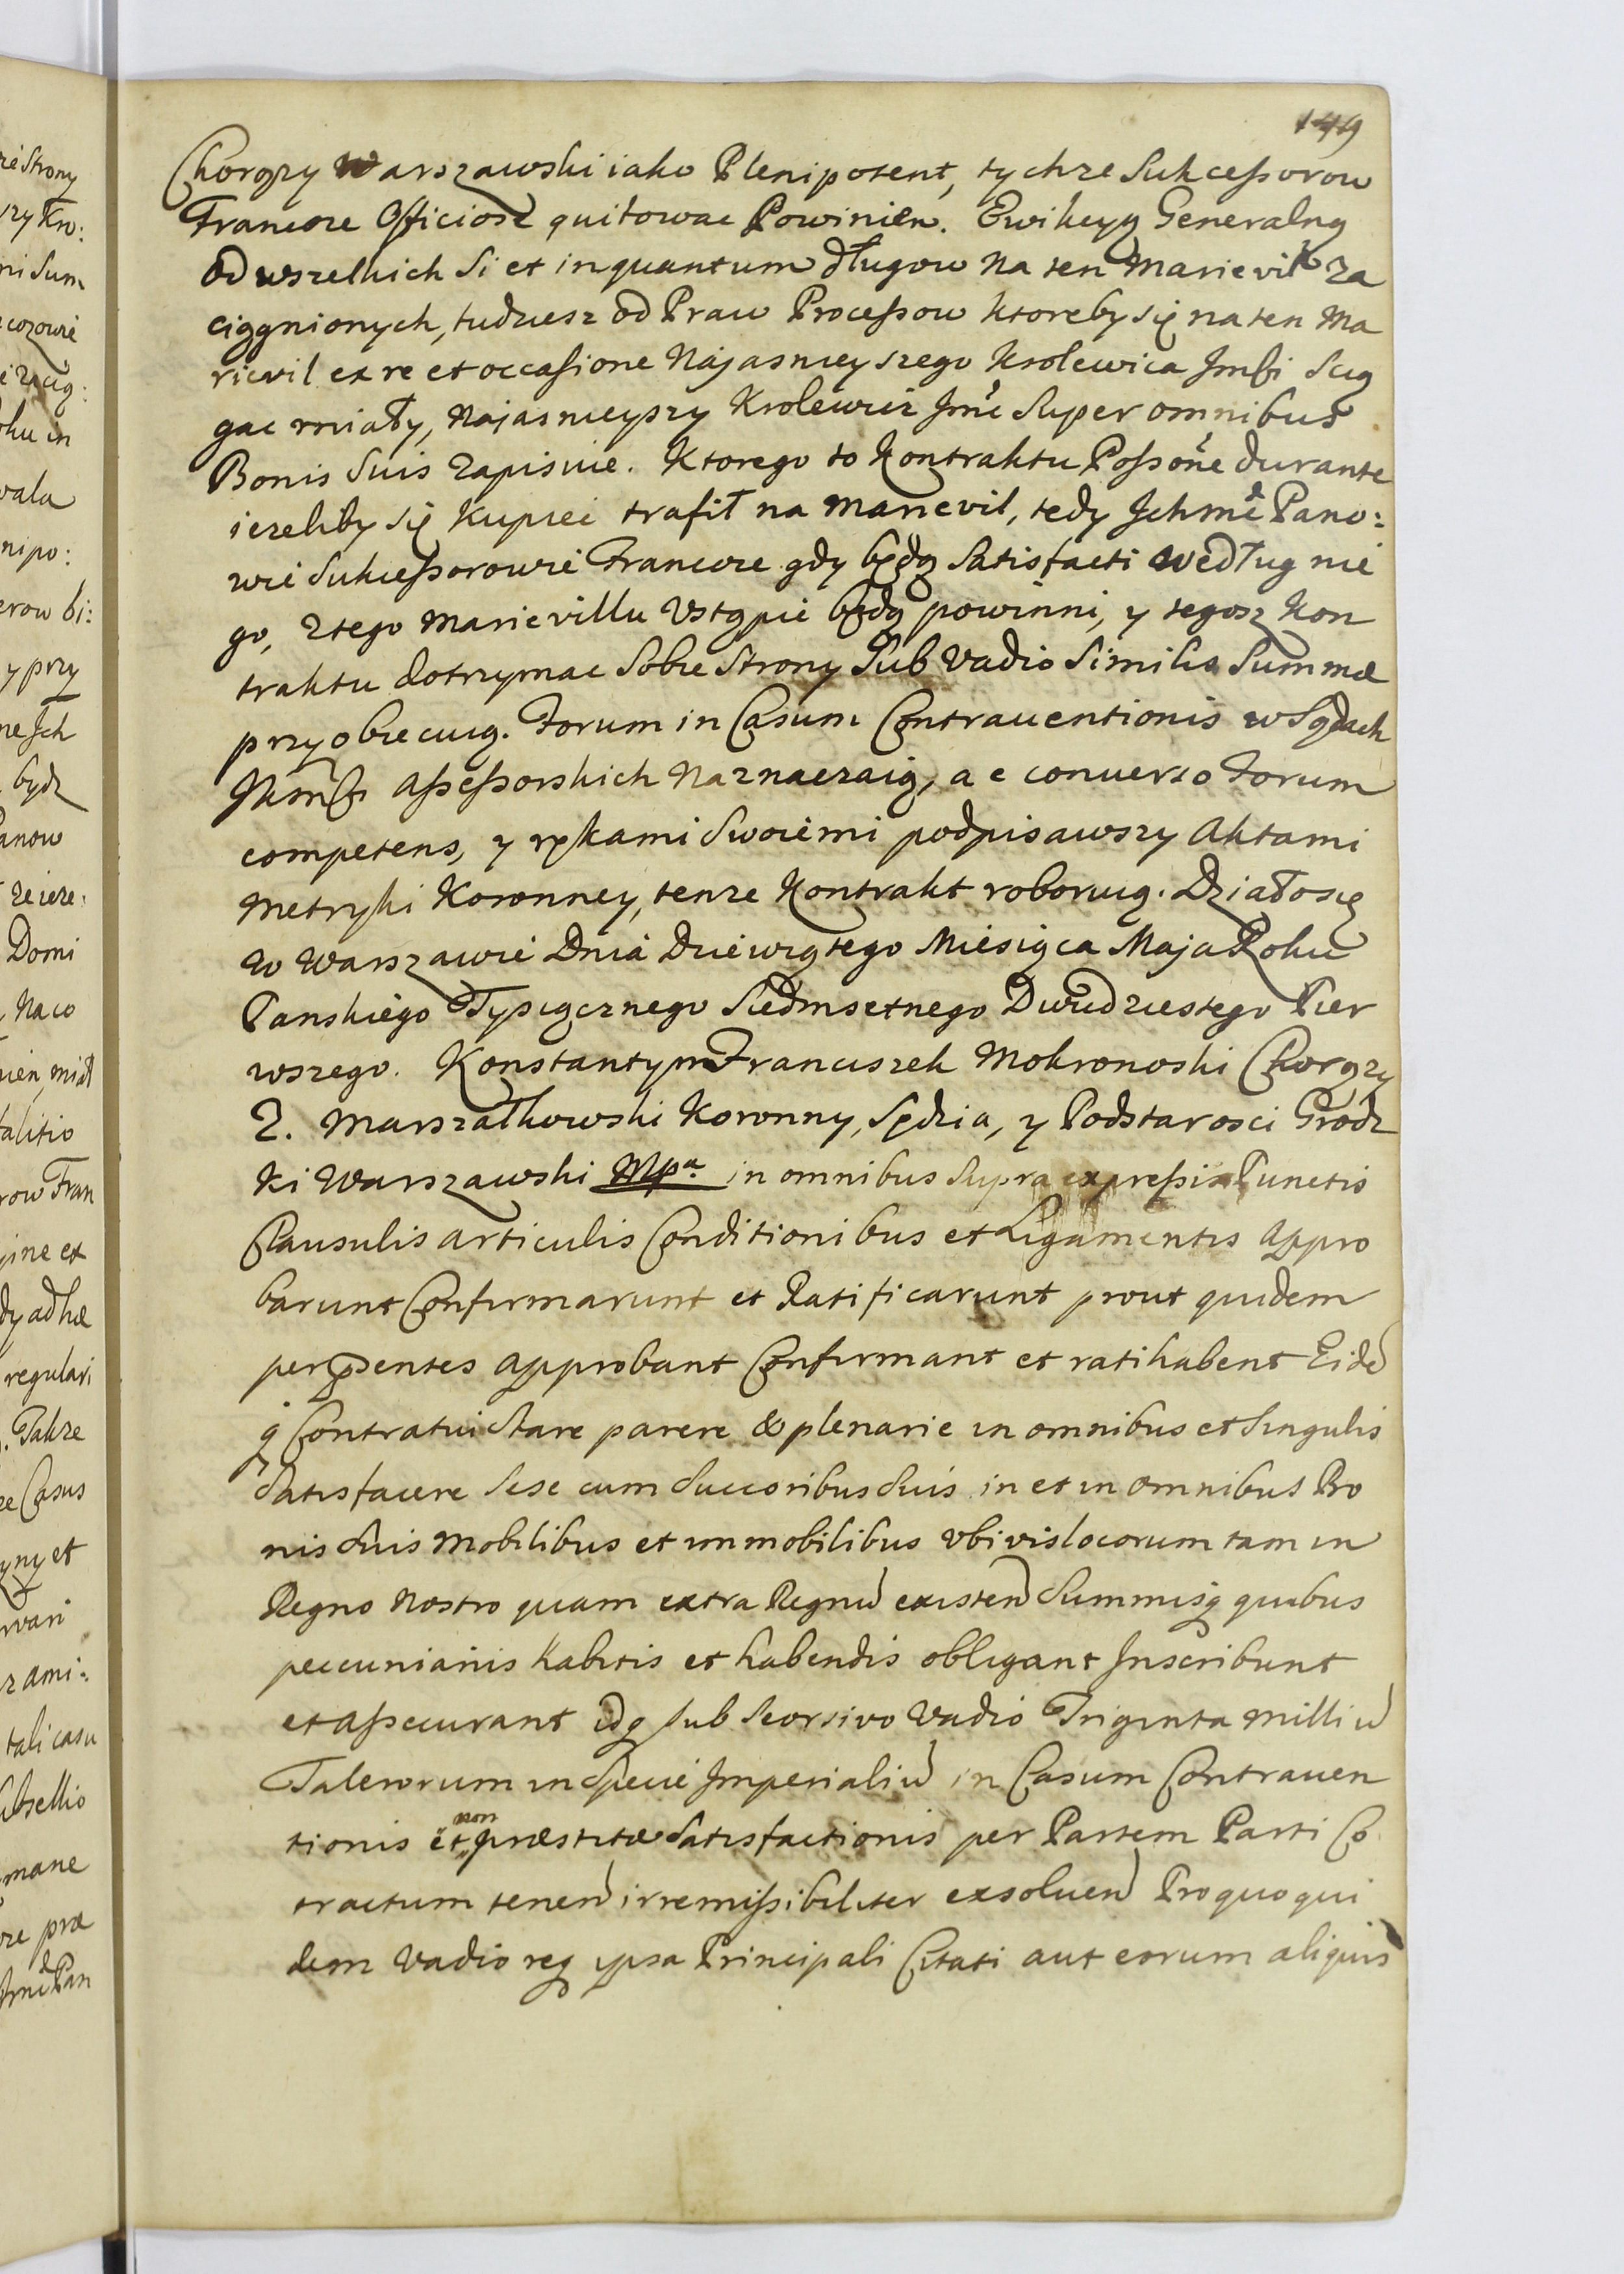 149
Chorązy Warszawski iako Plenipotent, tychze Sukceßorow
Francore Officiose quitowac Powinien. Ewikcyą Generalną
od wszelkich Si et inquantum długow na ten Marievil za
ciągnionych, tudziesz od Praw Proceßow ktoreby się na ten Ma
rievil ex re et occasione Najasnieyszego Krolewica Jmści Scią
gac miały, Najasnieyszy Krolewic Jmć Super omnibus
Bonis Suis zapisuie. Ktorego to Kontraktu Poßoñe durante
iezeliby się Kupiec trafił na Marievil, tedy Jchmć Pano:
wie Sukceßorowie Francore gdy będą Satisfacti według nie
go, z tego Marievillu Vstąpic będą powinni, y tegosz Kon
traktu dotrzymac Sobie Strony Sub Vadio Similis Summæ
przyobiecuią. Forum in Casum Contrauentionis w Sądach
Jkmści Aßeßorskich Naznaczaią, a e conuerso Forum
competens, y rękami Swoiemi podpisawszy Aktami
Metryki Koronney, tenze Kontrakt roboruią. Działo się
w Warszawie Dnia Dziewiątego Miesiąca Maja Roku
Panskiego Tysiącznego Siedmsetnego Dwudziestego Pier
wszego. Konstantyn Franciszek Mokronoski Chorązy
Z. Marszałkowski Koronny, Sędzia, y Podstarosci Grodz
ki Warszawski Mpa. in omnibus Supra expreßis Punctis
Clausulis articulis Conditionibus et Ligamentis Appro
barunt Confirmarunt et Ratificarunt prout quidem
per p̃sentes approbant Confirmant et ratihabent Eidē
q̨ Contratui Stare parere & plenarie in omnibus et Singulis
Satisfacere Sese cum Succoribus Suis in et in omnibus Bo
nis Suis Mobilibus et immobilibus vbivis locorum tam in
Regno Nostro quam extra Regnū existeñ Summisq̨ quibus
peccuniariis habitis et habendis obligant Jnscribunt
et aßecurant idq̨ sub Seorsivo Vadio Triginta Milliū
Talerorum in Specie Jmperialiū in Casum Contrauen
tionis et non præstitæ Satisfactionis per Partem Parti Co
tractum teneñ irremißibiliter exsolueñ Pro quo qui
dem Vadio req̨ ipsa Principali Citati aut eorum aliquis